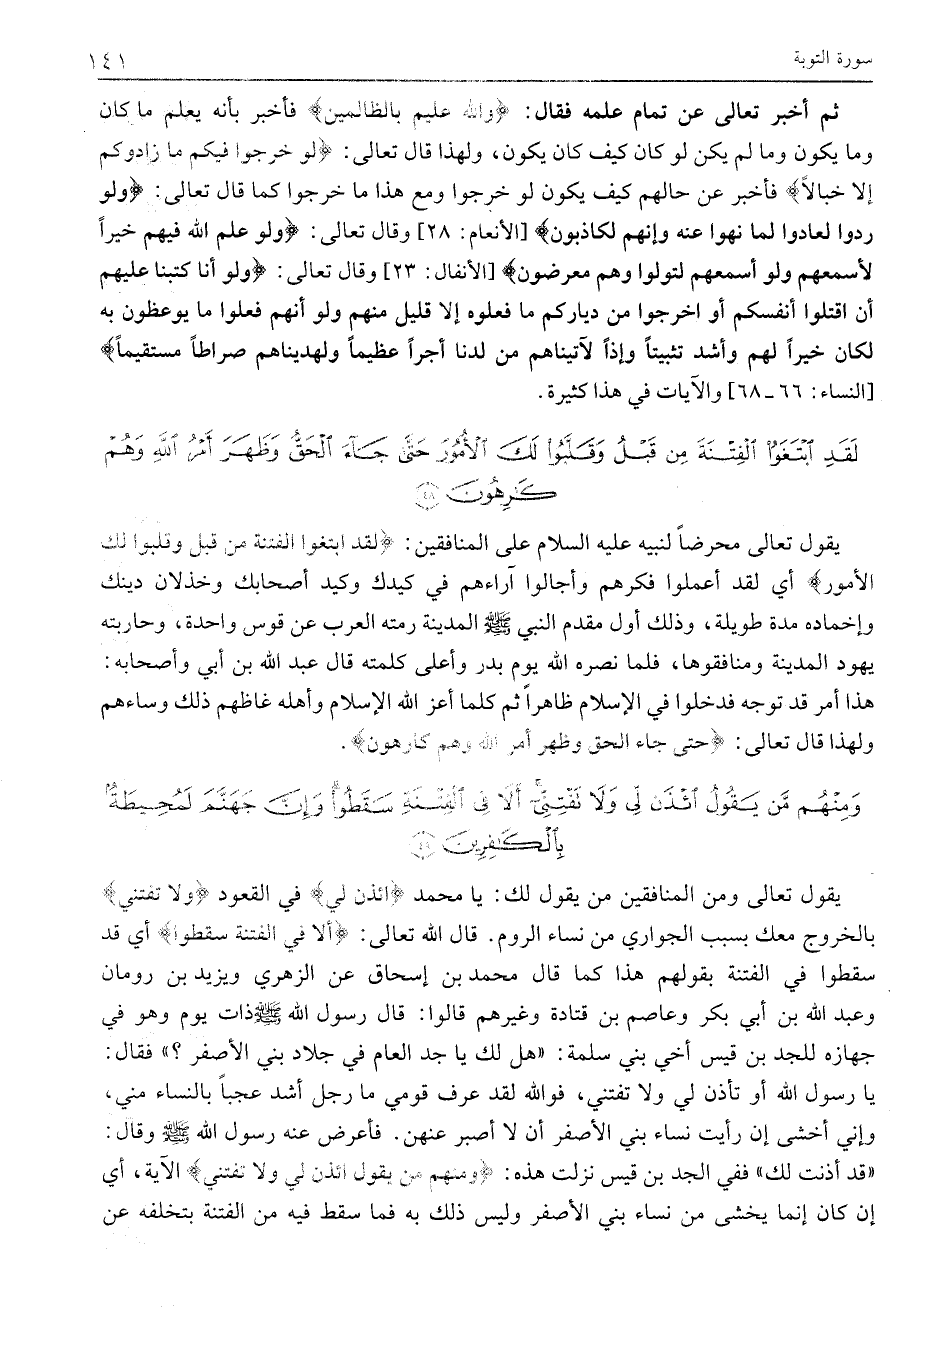 سورة التوبة
١٤١
ثم أخبر تعالى عن تمام علمه فقال: ﴿والله عليم بالظالمين﴾ فأخبر بأنه يعلم ما كان
وما يكون وما لم يكن لو كان كيف كان يكون، ولهذا قال تعالى: ﴿لو خرجوا فيكم ما زادوكم
إلا خبالاً﴾ فأخبر عن حالهم كيف يكون لو خرجوا ومع هذا ما خرجوا كما قال تعالى: ﴿ولو
ردوا لعادوا لما نهوا عنه وإنهم لكاذبون﴾ [الأنعام: ٢٨] وقال تعالى: ﴿ولو علم الله فيهم خيراً
لأسمعهم ولو أسمعهم لتولوا وهم معرضون﴾ [الأنفال: ٢٣] وقال تعالى: ﴿ولو أنا كتبنا عليهم
أن اقتلوا أنفسكم أو اخرجوا من دياركم ما فعلوه إلا قليل منهم ولو أنهم فعلوا ما يوعظون به
لكان خيراً لهم وأشد تثبيتاً وإذاً لآتيناهم من لدنا أجراً عظيماً ولهديناهم صراطاً مستقيماً﴾
[النساء: ٦٦ـ٦٨] والآيات في هذا كثيرة.
لَقَدِ ٱبْتَغَوُا۟ ٱلْفِتْنَةَ مِن قَبْلُ وَقَلَّبُوا۟ لَكَ ٱلْأُمُورَ حَتَّىٰ جَآءَ ٱلْحَقُّ وَظَهَرَ أَمْرُ ٱللَّهِ وَهُمْ
كَـٰرِهُونَ ﴿٤٨﴾
يقول تعالى محرضاً لنبيه عليه السلام على المنافقين: ﴿لقد ابتغوا الفتنة من قبل وقلبوا لك
الأمور﴾ أي لقد أعملوا فكرهم وأجالوا آراءهم في كيدك وكيد أصحابك وخذلان دينك
وإخماده مدة طويلة، وذلك أول مقدم النبي ﷺ المدينة رمته العرب عن قوس واحدة، وحاربته
يهود المدينة ومنافقوها، فلما نصره الله يوم بدر وأعلى كلمته قال عبد الله بن أبي وأصحابه:
هذا أمر قد توجه فدخلوا في الإسلام ظاهراً ثم كلما أعز الله الإسلام وأهله غاظهم ذلك وساءهم
ولهذا قال تعالى: ﴿حتى جاء الحق وظهر أمر الله وهم كارهون﴾.
وَمِنْهُم مَّن يَقُولُ ٱئْذَن لِّى وَلَا تَفْتِنِّىٓ ۚ أَلَا فِى ٱلْفِتْنَةِ سَقَطُوا۟ ۗ وَإِنَّ جَهَنَّمَ لَمُحِيطَةٌۢ
بِٱلْكَـٰفِرِينَ ﴿٤٩﴾
يقول تعالى ومن المنافقين من يقول لك: يا محمد ﴿ائذن لي﴾ في القعود ﴿ولا تفتني﴾
بالخروج معك بسبب الجواري من نساء الروم. قال الله تعالى: ﴿ألا في الفتنة سقطوا﴾ أي قد
سقطوا في الفتنة بقولهم هذا كما قال محمد بن إسحاق عن الزهري ويزيد بن رومان
وعبد الله بن أبي بكر وعاصم بن قتادة وغيرهم قالوا: قال رسول الله ﷺ ذات يوم وهو في
جهازه للجد بن قيس أخي بني سلمة: «هل لك يا جد العام في جلاد بني الأصفر ؟» فقال:
يا رسول الله أو تأذن لي ولا تفتني، فوالله لقد عرف قومي ما رجل أشد عجباً بالنساء مني،
وإني أخشى إن رأيت نساء بني الأصفر أن لا أصبر عنهن. فأعرض عنه رسول الله ﷺ وقال:
«قد أذنت لك» ففي الجد بن قيس نزلت هذه: ﴿ومنهم من يقول ائذن لي ولا تفتني﴾ الآية، أي
إن كان إنما يخشى من نساء بني الأصفر وليس ذلك به فما سقط فيه من الفتنة بتخلفه عن